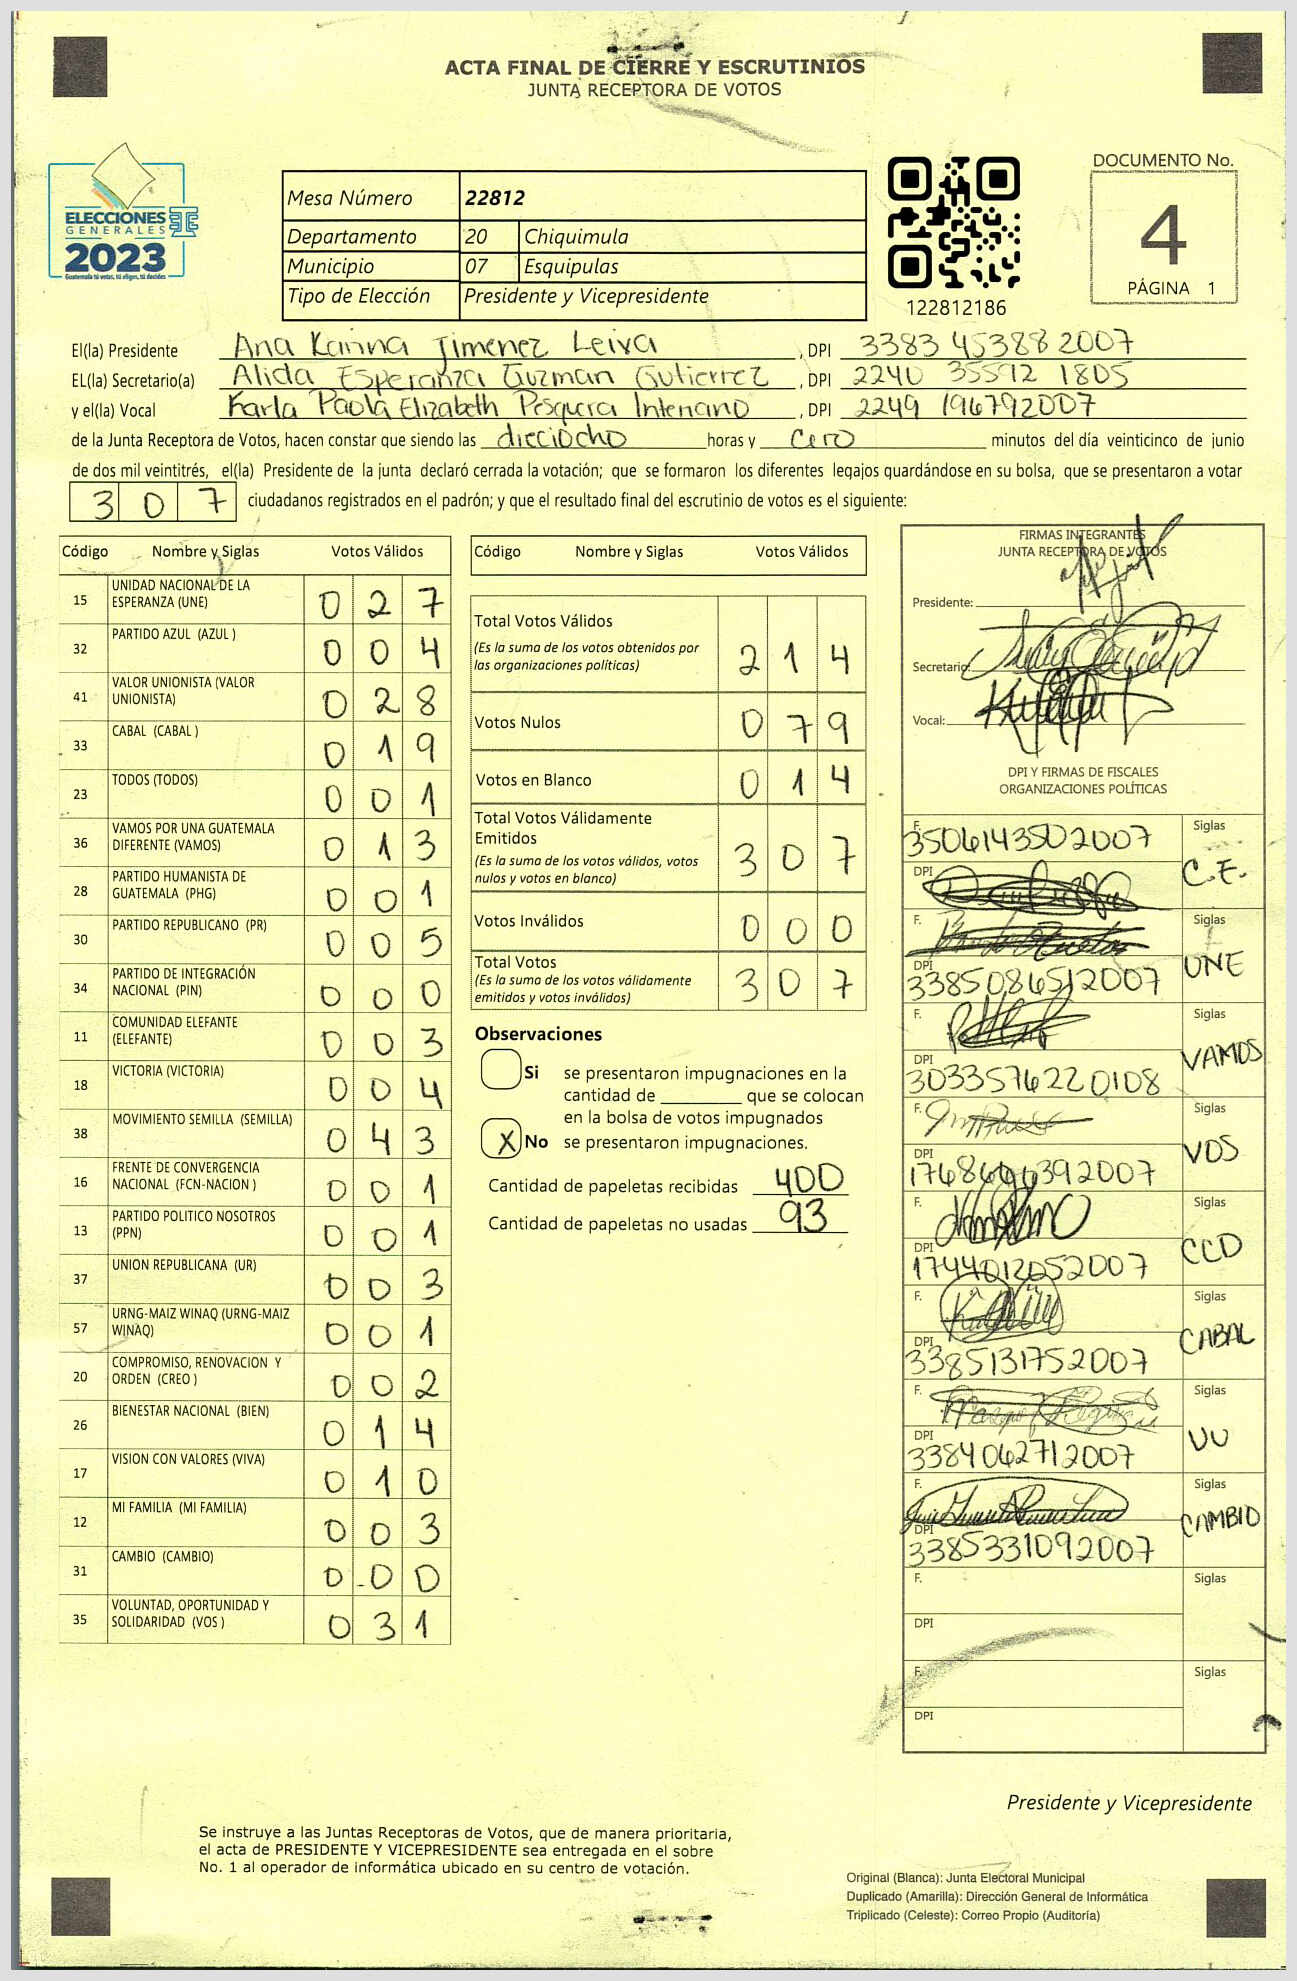 ACTA FINAL DE CIERRE Y ESCRUTINIOS
JUNTA RECEPTORA DE VOTOS
ELECCIONES
GENERALES
2023
Guatemala tú votas, tú eliges, tú decides
Mesa Número 22812
Departamento 20 Chiquimula
Municipio 07 Esquipulas
Tipo de Elección Presidente y Vicepresidente
122812186
DOCUMENTO No.
4
PÁGINA 1
El(la) Presidente Ana Karina Jimenez Leiva , DPI 3383 45388 2007
EL(la) Secretario(a) Alida Esperanza Guzman Gutierrez , DPI 2240 35592 1805
y el(la) Vocal Karla Paola Elizabeth Pesquera Interiano , DPI 2249 196792007
de la Junta Receptora de Votos, hacen constar que siendo las dieciocho horas y cero minutos del día veinticinco de junio
de dos mil veintitrés, el(la) Presidente de la junta declaró cerrada la votación; que se formaron los diferentes legajos guardándose en su bolsa, que se presentaron a votar
307 ciudadanos registrados en el padrón; y que el resultado final del escrutinio de votos es el siguiente:
Código Nombre y Siglas Votos Válidos
15 UNIDAD NACIONAL DE LA ESPERANZA (UNE) 027
32 PARTIDO AZUL (AZUL ) 004
41 VALOR UNIONISTA (VALOR UNIONISTA) 028
33 CABAL (CABAL ) 019
23 TODOS (TODOS) 001
36 VAMOS POR UNA GUATEMALA DIFERENTE (VAMOS) 013
28 PARTIDO HUMANISTA DE GUATEMALA (PHG) 001
30 PARTIDO REPUBLICANO (PR) 005
34 PARTIDO DE INTEGRACIÓN NACIONAL (PIN) 000
11 COMUNIDAD ELEFANTE (ELEFANTE) 003
18 VICTORIA (VICTORIA) 004
38 MOVIMIENTO SEMILLA (SEMILLA) 043
16 FRENTE DE CONVERGENCIA NACIONAL (FCN-NACION ) 001
13 PARTIDO POLITICO NOSOTROS (PPN) 001
37 UNION REPUBLICANA (UR) 003
57 URNG-MAIZ WINAQ (URNG-MAIZ WINAQ) 001
20 COMPROMISO, RENOVACION Y ORDEN (CREO ) 002
26 BIENESTAR NACIONAL (BIEN) 014
17 VISION CON VALORES (VIVA) 010
12 MI FAMILIA (MI FAMILIA) 003
31 CAMBIO (CAMBIO) 000
35 VOLUNTAD, OPORTUNIDAD Y SOLIDARIDAD (VOS ) 031
Código Nombre y Siglas Votos Válidos
Total Votos Válidos 214
(Es la suma de los votos obtenidos por
las organizaciones políticas)
Votos Nulos 079
Votos en Blanco 014
Total Votos Válidamente
Emitidos 307
(Es la suma de los votos válidos, votos
nulos y votos en blanco)
Votos Inválidos 000
Total Votos 307
(Es la suma de los votos válidamente
emitidos y votos inválidos)
Observaciones
Si se presentaron impugnaciones en la
cantidad de ________ que se colocan
en la bolsa de votos impugnados
X No se presentaron impugnaciones.
Cantidad de papeletas recibidas 400
Cantidad de papeletas no usadas 93
FIRMAS INTEGRANTES
JUNTA RECEPTORA DE VOTOS
Presidente:
Secretario:
Vocal:
DPI Y FIRMAS DE FISCALES
ORGANIZACIONES POLÍTICAS
F. Siglas
3506143502007
DPI C.E.
F. Siglas
DPI UNE
3385086512007
F. Siglas
DPI VAMOS
3033576220108
F. Siglas
DPI VOS
F. Siglas
DPI CCD
1744012052007
F. Siglas
DPI CABAL
3385131752007
F. Siglas
DPI VU
3384062712007
F. Siglas
DPI CAMBIO
3385331092007
F. Siglas
DPI
F. Siglas
DPI
Presidente y Vicepresidente
Se instruye a las Juntas Receptoras de Votos, que de manera prioritaria,
el acta de PRESIDENTE Y VICEPRESIDENTE sea entregada en el sobre
No. 1 al operador de informática ubicado en su centro de votación.
Original (Blanca): Junta Electoral Municipal
Duplicado (Amarilla): Dirección General de Informática
Triplicado (Celeste): Correo Propio (Auditoría)